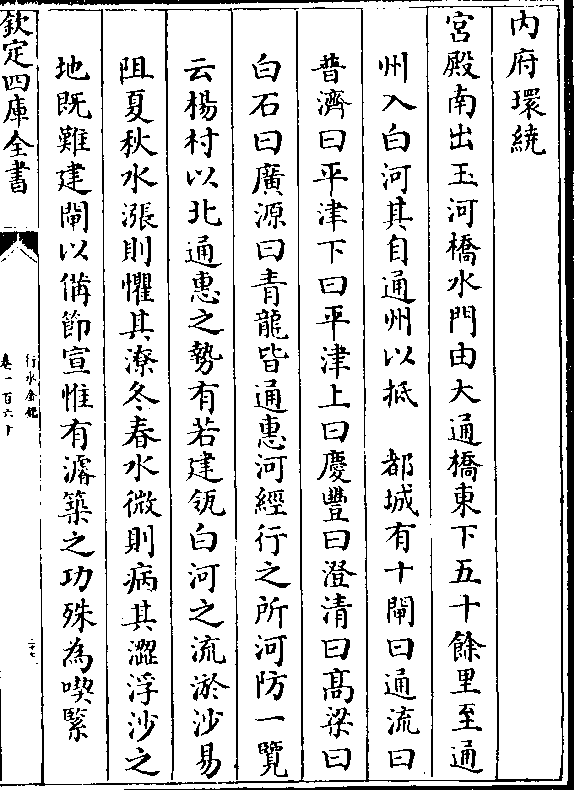 內府環繞
宮殿南出玉河橋水門由大通橋東下五十餘里至通
州入白河其自通州以抵　都城有十閘曰通流曰
普濟曰平津下曰平津上曰慶豐曰澄清曰高梁曰
白石曰廣源曰青龍皆通惠河經行之所河防一覽
云楊村以北通惠之勢有若建瓴白河之流淤沙易
阻夏秋水漲則懼其潦冬春水微則病其澀浮沙之
地既難建閘以備節宣惟有濬築之功殊為喫緊
欽定四庫全書
行水金鑑
卷一百六十